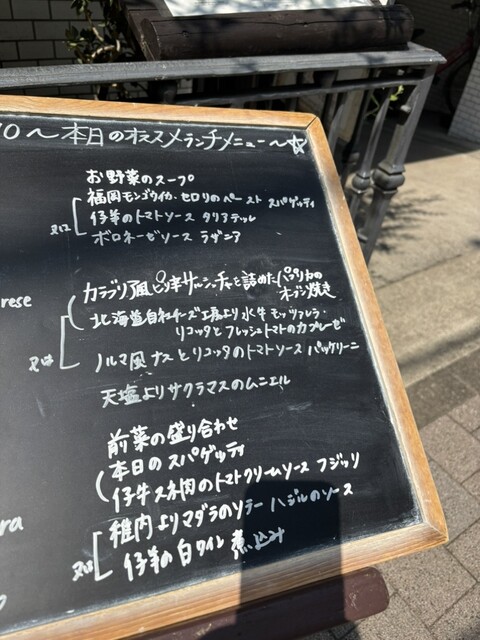 10～本日のオススメランチメニュー～☆
お野菜のスープ
福岡モンゴウイカ、セロリのペースト スパゲッティ
仔羊のトマトソース タリアテッレ
又は
ボロネーゼソース ラザニア
カラブリア風ピリ辛サルシッチャを詰めたパプリカの
オーブン焼き
rese
北海道自社チーズ工房より水牛モッツァレラ・
リコッタとフレッシュトマトのカプレーゼ
又は
ノルマ風 ナスとリコッタのトマトソース パッケリーニ
天塩よりサクラマスのムニエル
前菜の盛り合わせ
本日のスパゲッティ
仔牛スネ肉のトマトクリームソース フジッリ
稚内よりマダラのソテー バジルのソース
ra
又は
仔羊の白ワイン煮込み